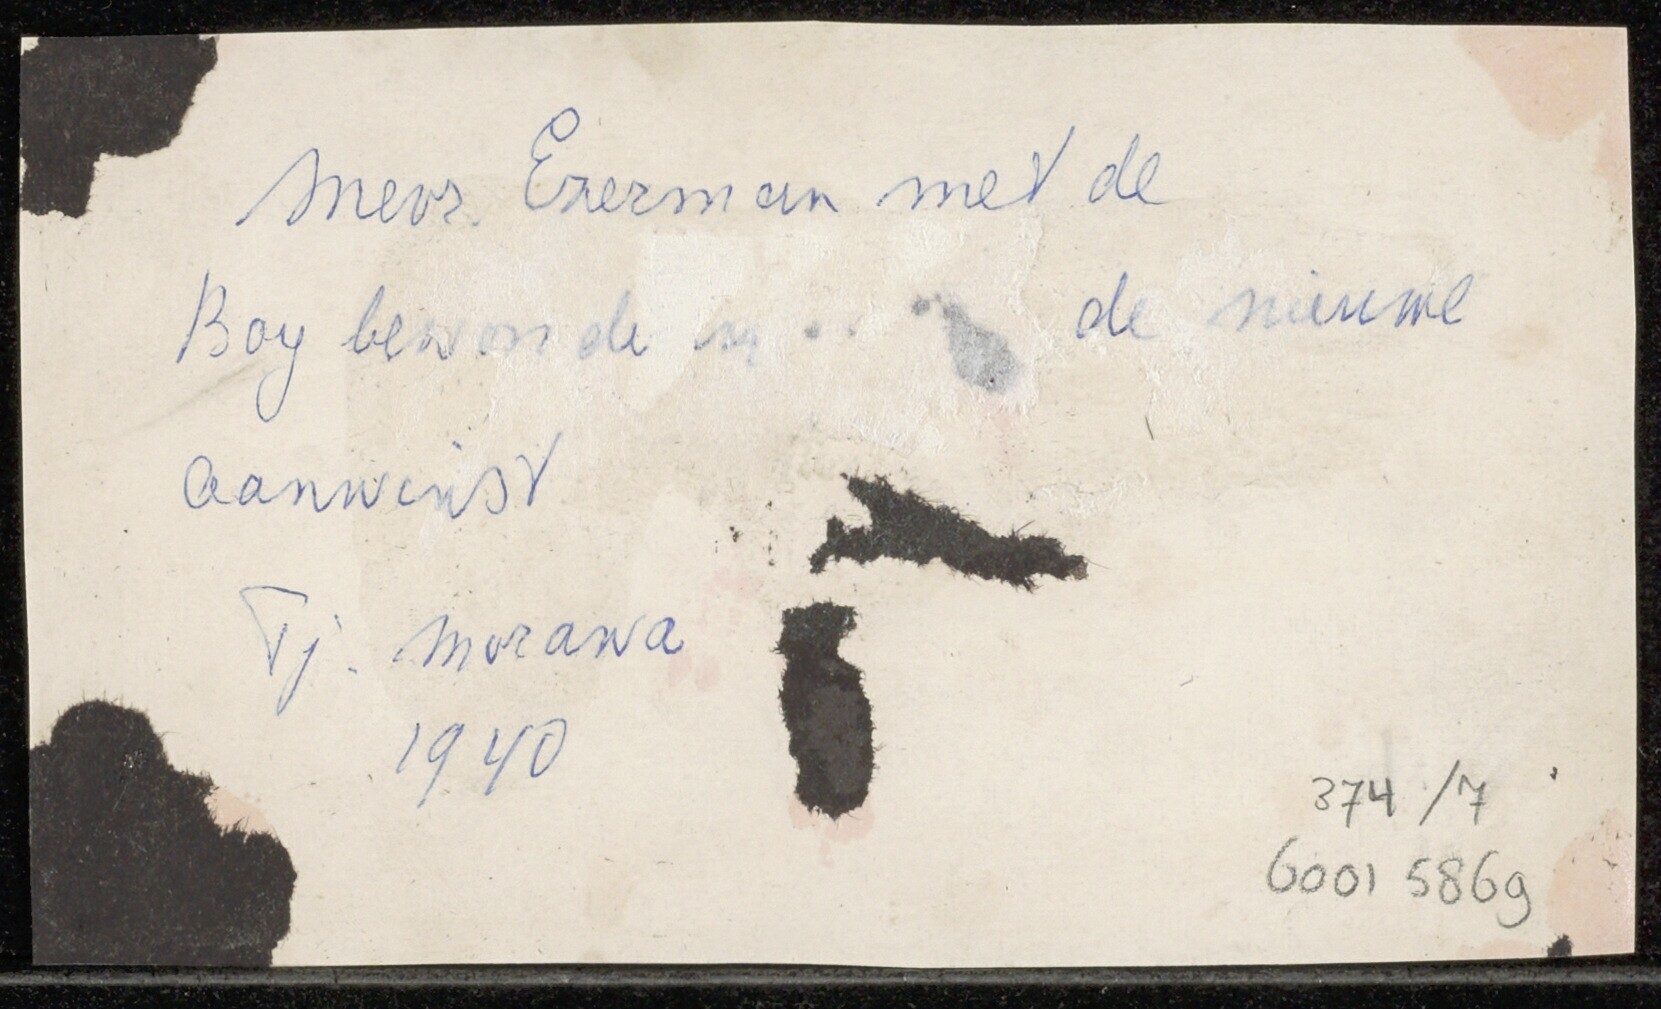 Mevr. Ezerman met de
Boy bewonde de nieuwe
aanwinst
Tj. Morawa
1940
374/7
6001 586g